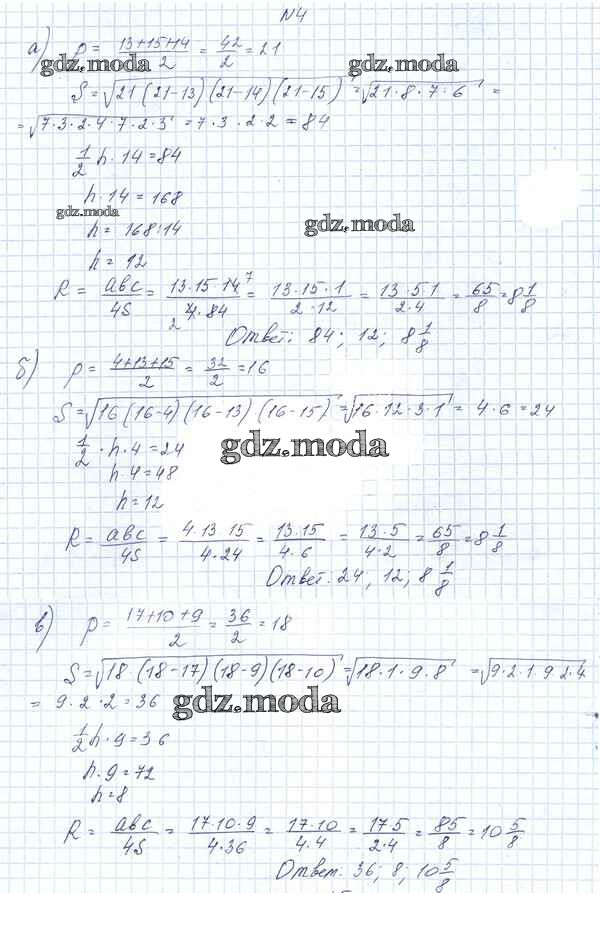 №4
а) p = (13+15+14)/2 = 42/2 = 21
gdz.moda gdz.moda
S = √(21(21-13)(21-14)(21-15)) = √(21·8·7·6) =
= √(7·3·2·4·7·2·3) = 7·3·2·2 = 84
1/2 h·14 = 84
h·14 = 168
gdz.moda gdz.moda
h = 168:14
h = 12
R = abc/4S = 13·15·14 7/2 4·84 = 13·15·1/2·12 = 13·5·1/2·4 = 65/8 = 8 1/8
Ответ: 84; 12; 8 1/8
б) p = (4+13+15)/2 = 32/2 = 16
S = √(16(16-4)(16-13)(16-15)) = √(16·12·3·1) = 4·6 = 24
1/2·h·4 = 24
gdz.moda
h·4 = 48
h = 12
R = abc/4S = 4·13·15/4·24 = 13·15/4·6 = 13·5/4·2 = 65/8 = 8 1/8
Ответ: 24; 12; 8 1/8
в) p = (17+10+9)/2 = 36/2 = 18
S = √(18·(18-17)(18-9)(18-10)) = √(18·1·9·8) = √(9·2·1·9·2·4)
= 9·2·2 = 36
gdz.moda
1/2 h·9 = 36
h·9 = 72
h = 8
R = abc/4S = 17·10·9/4·36 = 17·10/4·4 = 17·5/2·4 = 85/8 = 10 5/8
Ответ: 36; 8; 10 5/8